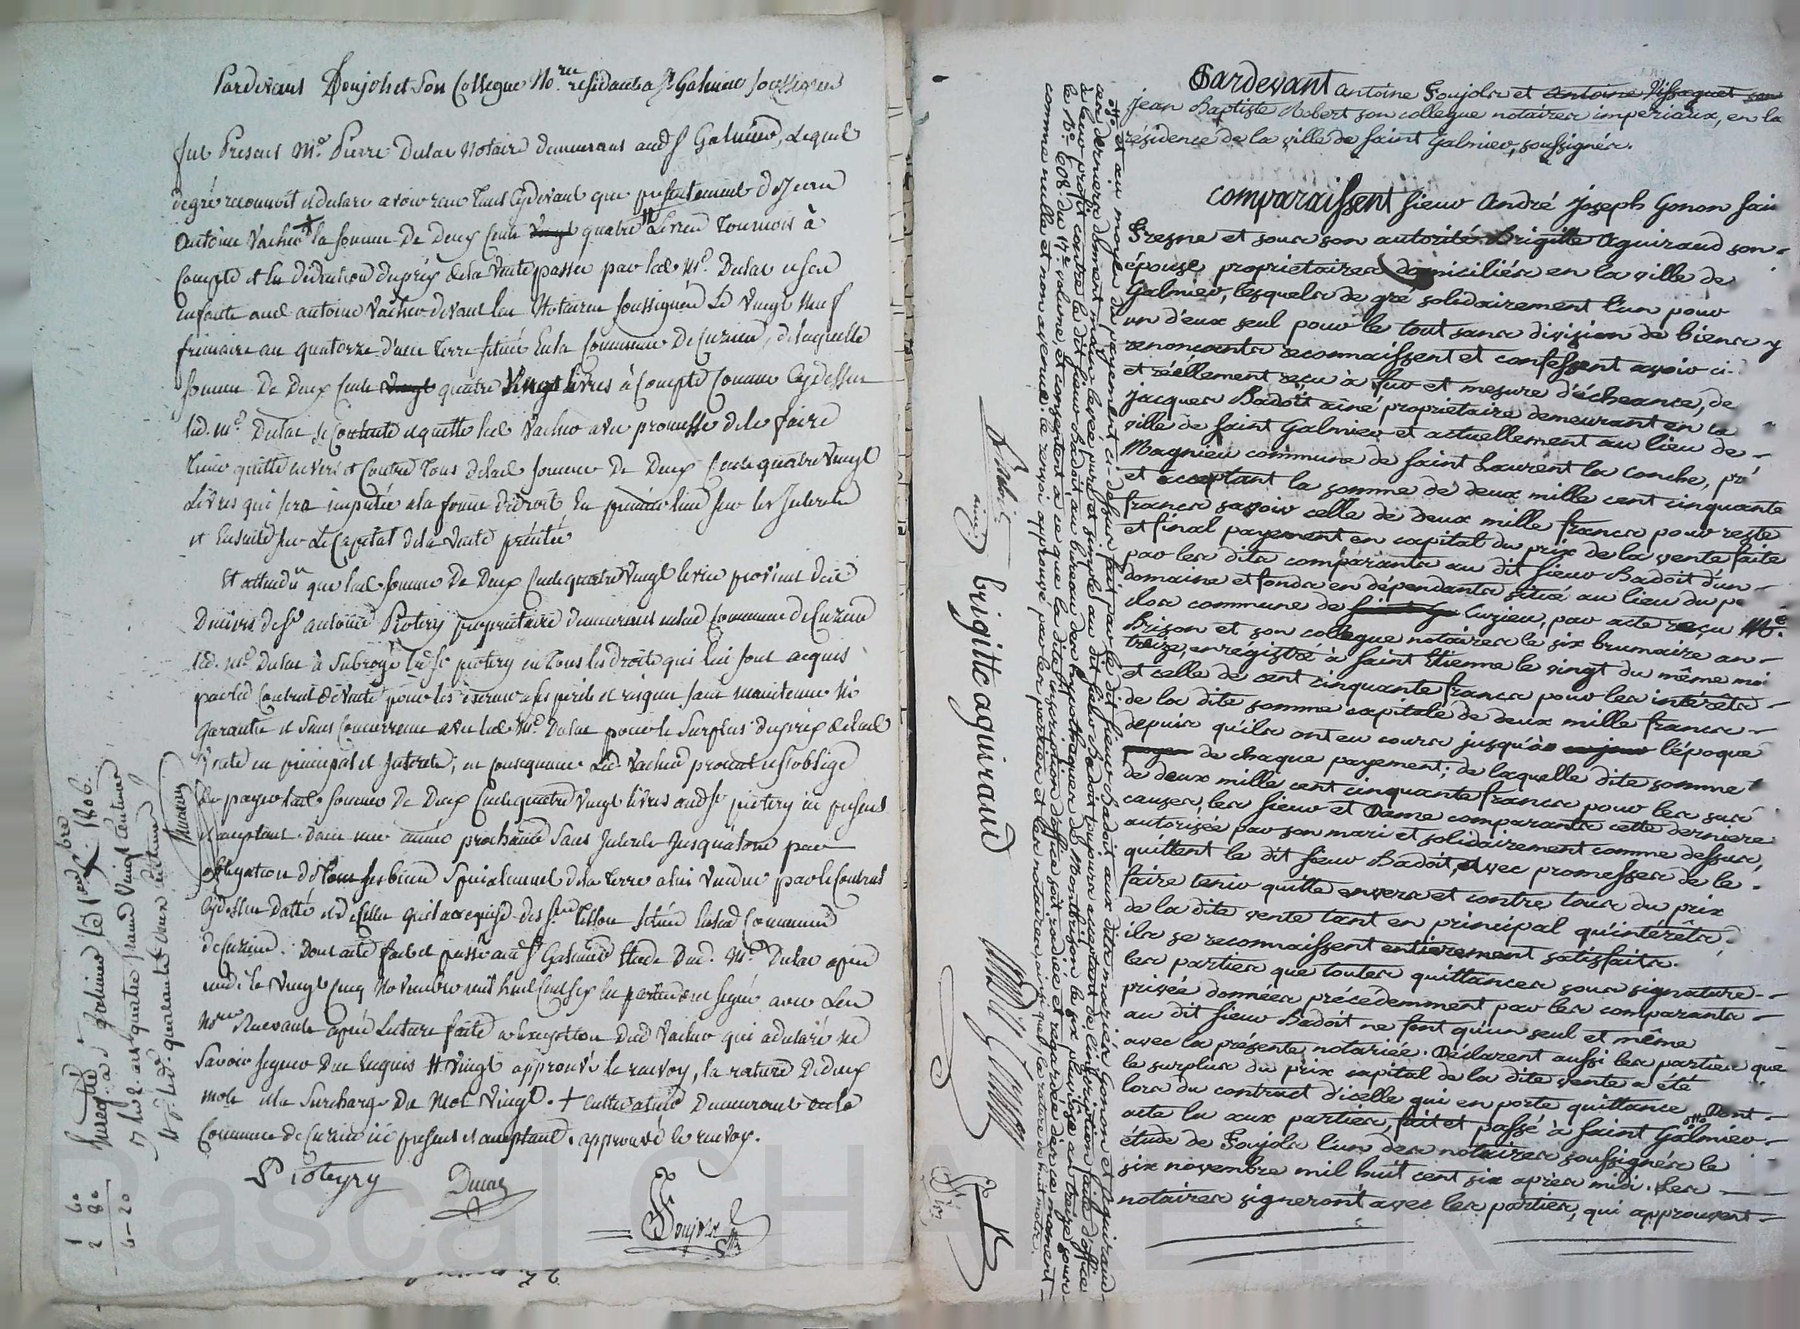 Pardevant Foujols et Son Collegue No.res residants a St Galmier soussignés
fut Present Me. Pierre Dulac Notaire demeurant aud St Galmier, Lequel
de gré reconnoit et declare avoir recu tant cydevant que presentement de
Antoine Vacher + la somme De Deux Cents vingt quatre Livres Tournois à
Compte et En Deduction du prix de la Vente passée par led. Me. Dulac
aud. antoine Vacher devant les Notaires soussignés Le Vingt neuf
frimaire an quatorze d'une terre située En la Commune De Cuzieu, de laquelle
somme De Deux Cents vingt quatre Vingt Livres à Compte Comme Cydessus
led. Me. Dulac se Contente et quitte led. Vacher avec promesse de le faire
tenir quitte envers et Contre tous de lad. somme De Deux Cents quatre Vingt
Livres qui sera imputée a la forme de droit En premier lieu sur les Interets
et Ensuite sur Le Capital de la Vente précitée
Et attendu que lad. somme De Deux Cents quatre Vingt livres provient des
Deniers de Sr antoine Pioteyry propriétaire demeurant en lad Commune de Cuzieu
led. Me Dulac à Subrogé led. Sr pioteyry en tous les droits qui lui sont acquis
par led Contrat de Vente pour les exercer a ses perils et risques sans maintenue ni
garantie et Sans Concurrence avec led. Me. Dulac pour le Surplus du prix de lad.
Vente en principal et Interets, en consequence Led. Vacher promet et s'oblige
de payer lad. somme De Deux Cents quatre Vingt livres aud Sr pioteyry ici present
et acceptant dans une année prochaine Sans Interets Jusqu'alors par
obligation de tous ses biens Specialement de la terre a lui Vendue par le Contrat
cydessus datté et de celles qu'il a acquises des Srs située En lad Commune
de Cuzieu. Dont acte fait et passé aud St Galmier Etude Dud. Me. Dulac après
midi le Vingt cinq Novembre mil huit Cent six les parties ont signé avec Les
Nores Recevants après Lecture faite a l'exception Dud Vacher qui a declaré ne
Savoir signer Due Enquis # Vingt approuvé le renvoy, la rature De deux
mots et la Surcharge Du Mot Vingt. + cultivateur Demeurant en la
Commune de Cuzieu ici present et acceptant. approuvé le renvoy.
Pioteyry Dulac
Foujols
Enregistré à St galmier le 1er Xbre 1806.
1 60
2 80
4-20
Pardevant Antoine Foujols et Antoine Vissaguet son
Jean Baptiste Robert son collegue notaires impériaux, en la
résidence de la ville de Saint Galmier, soussignés.
Comparaissent Sieur André Joseph Gonon
Fresne et sous son autorité Brigitte Aguiraud son
épouse, propriétaires domiciliés en la ville de
Galmier, lesquels de gré solidairement l'un pour
un d'eux seul pour le tout sans division de biens y
renonçants reconnaissent et confessent avoir ci-
et réellement reçu à fur et mesure d'échéance, de
Jacques Badoit ainé propriétaire demeurant en la
ville de Saint Galmier et actuellement au lieu de
Magnieu commune de Saint Laurent la Conche,
et acceptant la somme de deux mille cent cinquante
francs savoir celle de deux mille francs pour reste
et final payement en capital du prix de la vente faite
par les dits comparants au dit Sieur Badoit d'un
domaine et fonds en dépendants situé au lieu du
commune de Cuzieu, par acte reçu Me.
Brizon et son collegue notaires le six brumaire an
treize, enregistré à Saint Etienne le vingt du même moi
et celle de cent cinquante francs pour les intérêts
de la dite somme capitale de deux mille francs
depuis qu'ils ont eu cours jusqu'à l'époque
de chaque payement; de laquelle dite somme
de deux mille cent cinquante francs pour les sus
causes, les Sieur et Dame comparants cette derniere
autorisée par son mari et solidairement comme dessus,
quittent le dit Sieur Badoit, avec promesses de le
faire tenir quitte envers et contre tous du prix
de la dite vente tant en principal qu'intérêts,
ils se reconnaissent entierement satisfaits.
les parties que toutes quittances sous signature
privée données précédemment par les comparants
au dit Sieur Badoit ne font qu'un seul et même
avec la présente notariée. Déclarent aussi les parties que
le surplus du prix capital de la dite vente a été
lors du contract d'icelle qui en porte quittance. Dont
acte lu aux parties, fait et passé à Saint Galmier
étude de Foujols l'un des notaires soussignés le
six novembre mil huit cent six après midi. Les
notaires signeront avec les parties, qui approuvent
et au moyen du payement ci-dessus fait par le dit Sieur Badoit aux dits mariés Gonon et Aguiraud
ces derniers donnent main levée pure et simple au dit Sieur Badoit toujours acceptant de l'inscription faite d'office
à leur profit contre le dit Sieur Badoit, au bureau des hypotheques de Montbrison le six pluviose an treize sous
le No. 608 du 17e volume, et consentent à ce que la dite inscription d'office soit radiée et regardée dès ce moment
comme nulle et non avenue. Ce renvoi approuvé par les parties et les notaires, ainsi que la rature de huit mots.
Badoit ainé
brigitte aguiraud
Pascal CHAREYRON